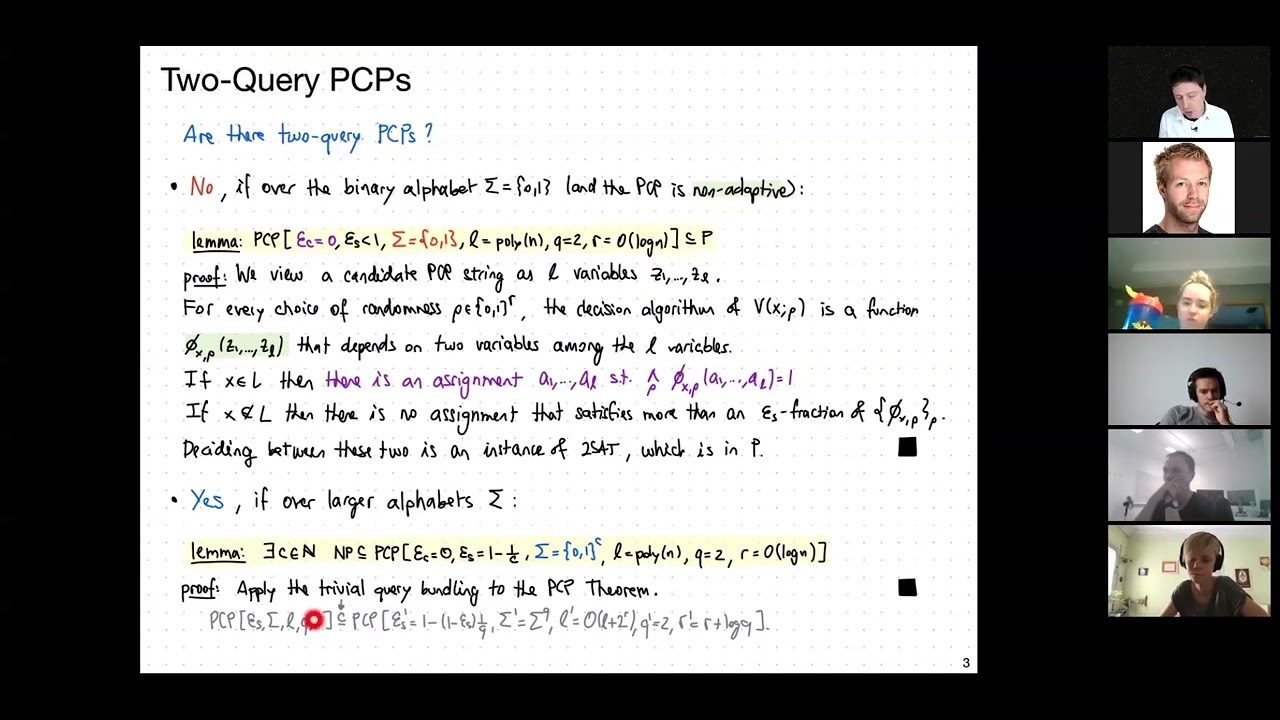 Two-Query PCPs
Are there two-query PCPs?
• No, if over the binary alphabet Σ={0,1} (and the PCP is non-adaptive):
lemma: PCP[εc=0, εs<1, Σ={0,1}, l=poly(n), q=2, r=O(log n)] ⊆ P
proof: We view a candidate PCP string as l variables z₁,...,zₗ.
For every choice of randomness ρ∈{0,1}ʳ, the decision algorithm of V(x;ρ) is a function
ϕx,ρ(z₁,...,zₗ) that depends on two variables among the l variables.
If x∈L then there is an assignment a₁,...,aₗ s.t. ∧ρ ϕx,ρ(a₁,...,aₗ)=1
If x∉L then there is no assignment that satisfies more than an εs-fraction of {ϕx,ρ}ρ.
Deciding between these two is an instance of 2SAT, which is in P. ■
• Yes, if over larger alphabets Σ:
lemma: ∃c∈N NP⊆PCP[εc=0, εs=1-1/c, Σ={0,1}ᶜ, l=poly(n), q=2, r=O(log n)]
proof: Apply the trivial query bundling to the PCP Theorem. ■
PCP[εs,Σ,l, ] ⊆ PCP[εs'=1-(1-εs)1/q, Σ'=Σ^q, l'=O(l+2ʳ), q'=2, r'=r+log q].
3